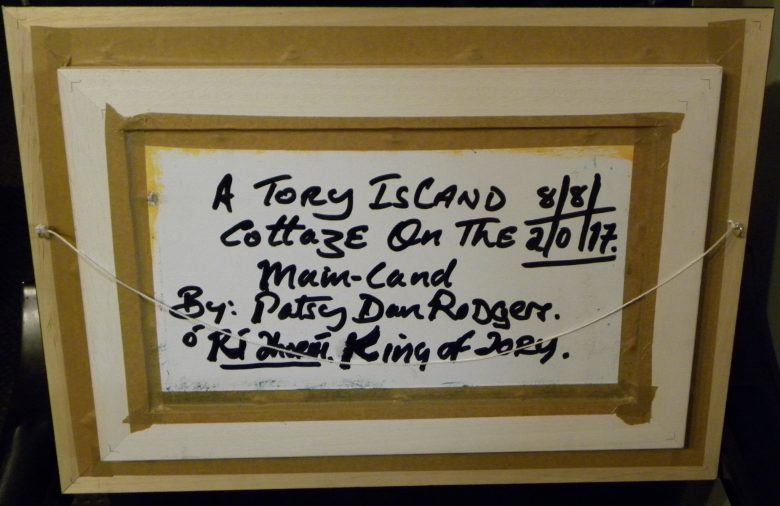 A TORY ISLAND 8/8/
Cottage On THE 2/0/17.
Main-Land
By: Patsy Dan Rodgers.
Rí King of Tory.